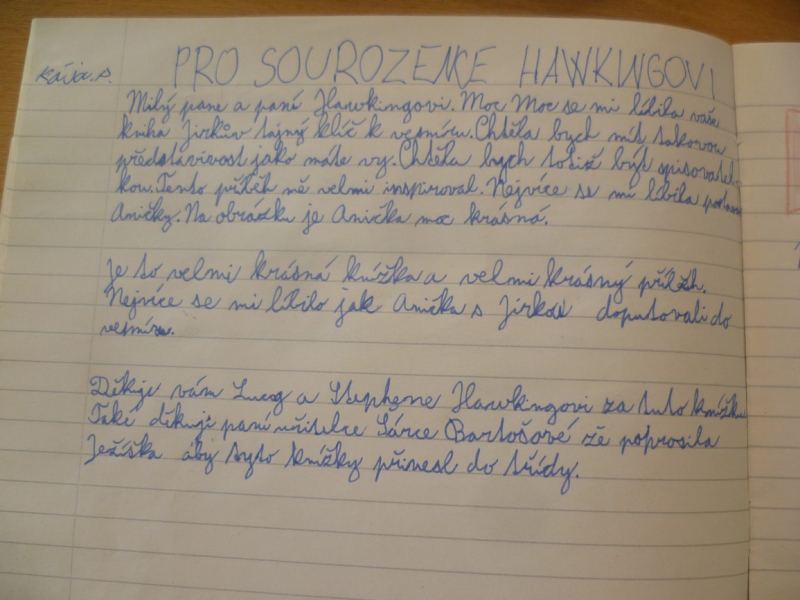 Kája. S.
PRO SOUROZENCE HAWKINGOVI
Milý pane a paní Hawkingovi. Moc Moc se mi líbila vaše
kniha Jirkův tajný klíč k vesmíru. Chtěla bych mít takovou
představivost jako máte vy. Chtěla bych totiž být spisovatel-
kou. Tento příběh mě velmi inspiroval. Nejvíce se mi líbila postava
Aničky. Na obrázku je Anička moc krásná.
Je to velmi krásná knížka a velmi krásný příběh.
Nejvíce se mi líbilo jak Anička s Jirkou doputovali do
vesmíru.
Děkuje vám Lucy a Stephene Hawkingovi za tuto knížku
Také děkuji paní učitelce Šárce Bartošové že poprosila
Ježíška aby tyto knížky přinesl do třídy.